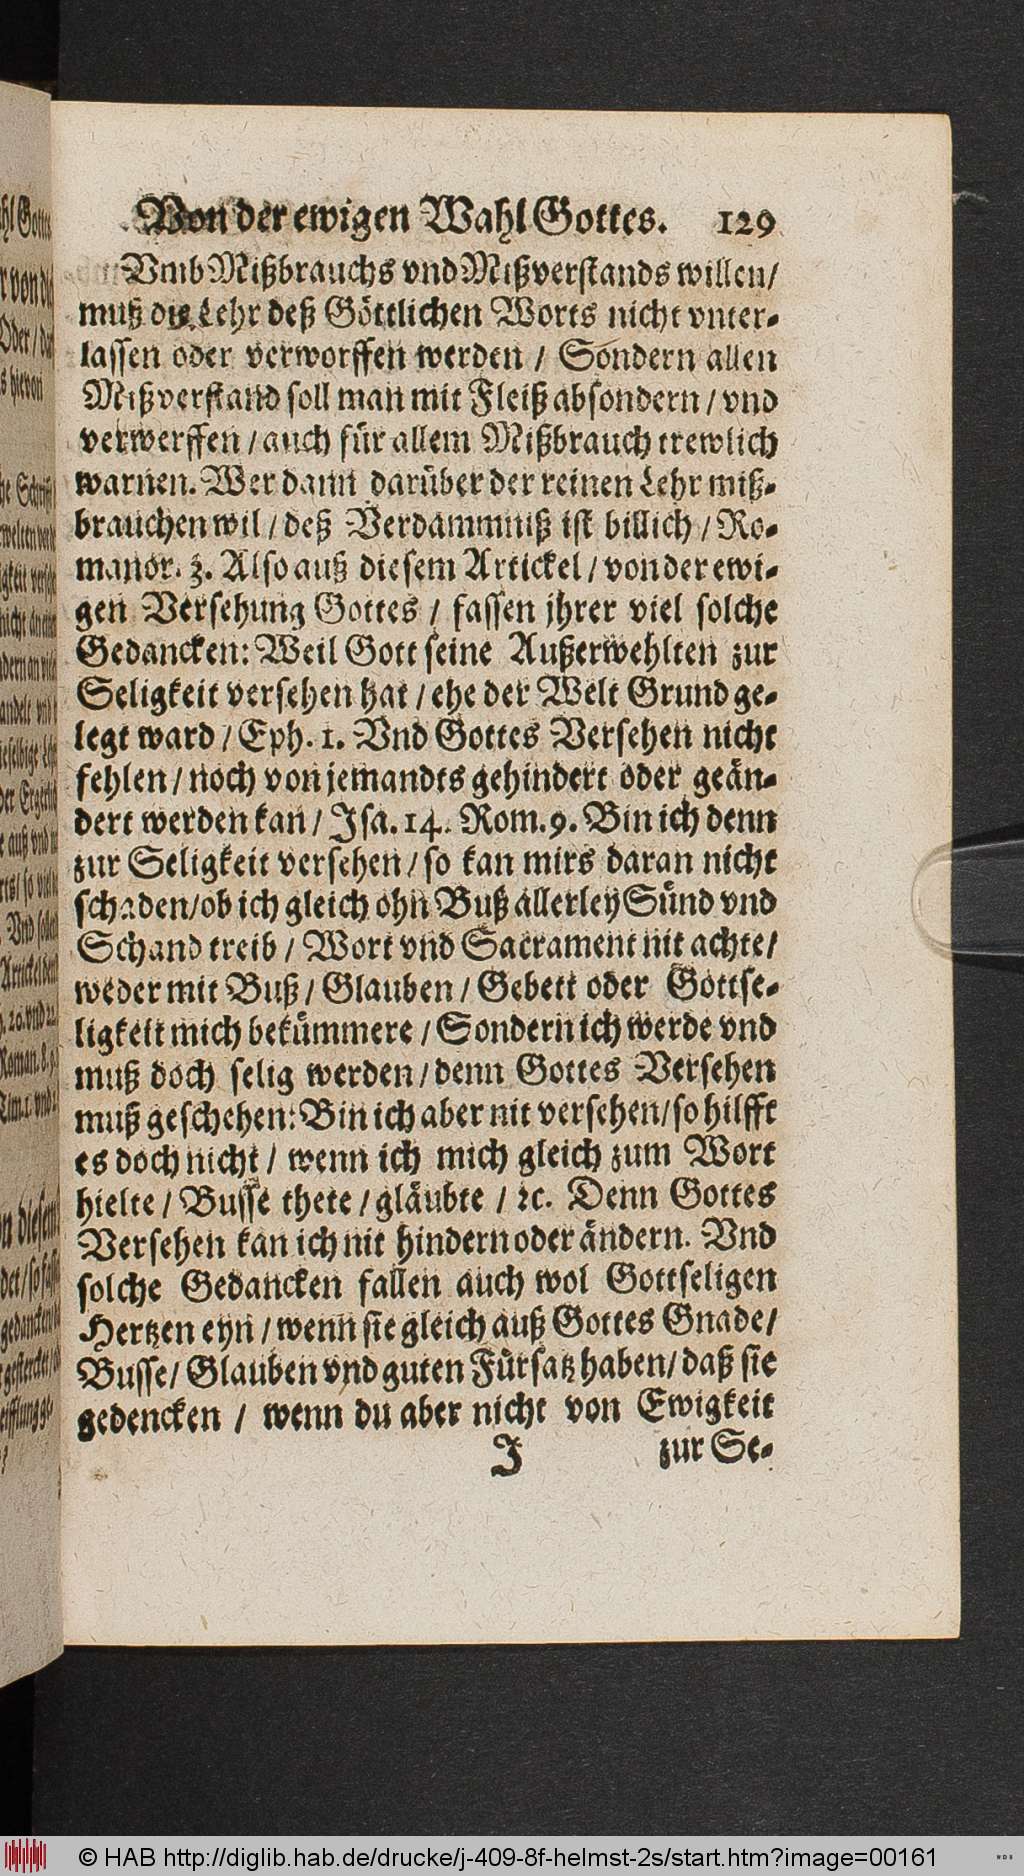 Von der ewigen Wahl Gottes. 129
Vmb Mißbrauchs vnd Mißverstands willen /
muß die Lehr deß Göttlichen Worts nicht vnter-
lassen oder verworffen werden / Sondern allen
Mißverstand soll man mit Fleiß absondern / vnd
verwerffen / auch für allem Mißbrauch trewlich
warnen. Wer dann darüber der reinen Lehr miß-
brauchen wil / deß Verdammniß ist billich / Ro-
manor. 3. Also auß diesem Artickel / von der ewi-
gen Versehung Gottes / fassen jhrer viel solche
Gedancken: Weil Gott seine Außerwehlten zur
Seligkeit versehen hat / ehe der Welt Grund ge-
legt ward / Eph. 1. Vnd Gottes Versehen nicht
fehlen / noch von jemandts gehindert oder geän-
dert werden kan / Isa. 14. Rom. 9. Bin ich denn
zur Seligkeit versehen / so kan mirs daran nicht
schaden / ob ich gleich ohn Buß allerley Sünd vnd
Schand treib / Wort vnd Sacrament nit achte /
weder mit Buß / Glauben / Gebett oder Gottse-
ligkeit mich bekümmere / Sondern ich werde vnd
muß doch selig werden / denn Gottes Versehen
muß geschehen: Bin ich aber nit versehen / so hilfft
es doch nicht / wenn ich mich gleich zum Wort
hielte / Busse thete / gläubte / ꝛc. Denn Gottes
Versehen kan ich nit hindern oder ändern. Vnd
solche Gedancken fallen auch wol Gottseligen
Hertzen eyn / wenn sie gleich auß Gottes Gnade /
Busse / Glauben vnd guten Fürsatz haben / daß sie
gedencken / wenn du aber nicht von Ewigkeit
J zur Se-
© HAB http://diglib.hab.de/drucke/j-409-8f-helmst-2s/start.htm?image=00161